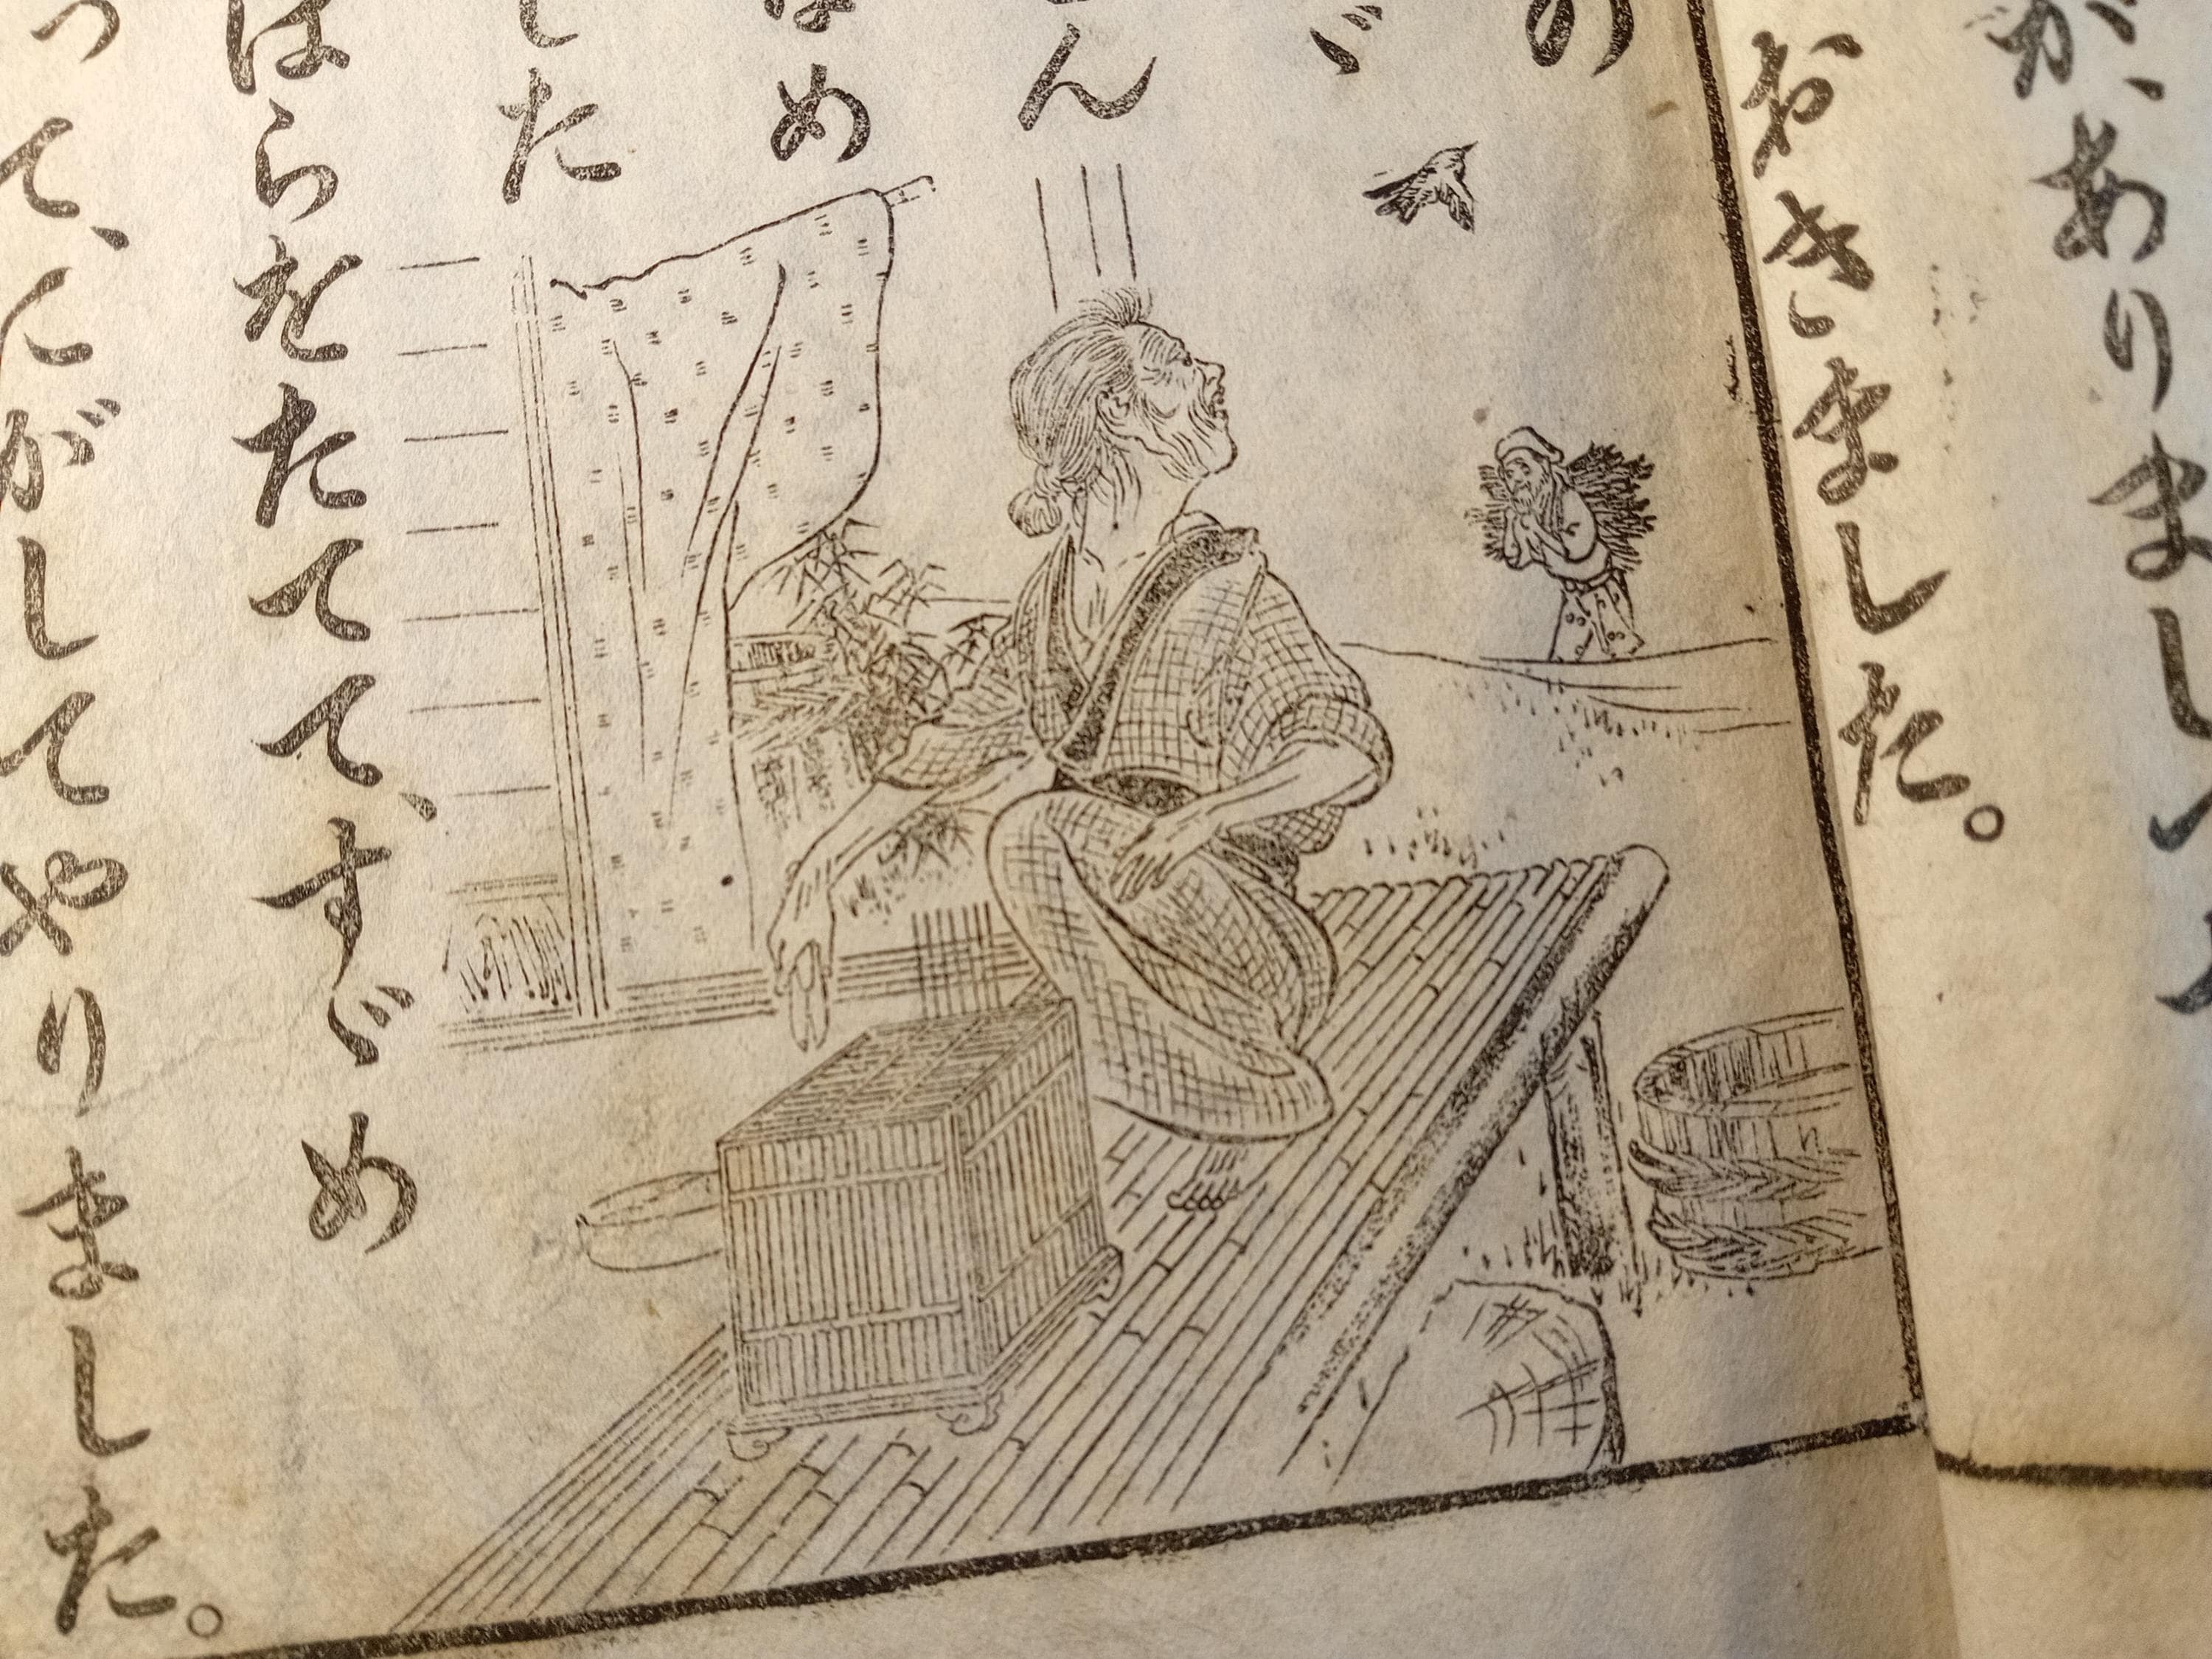 が、ありまし
おきました。
の
ゞ
ん
め
した
はらをたてて、すゞめ
って、にがしてやりました。